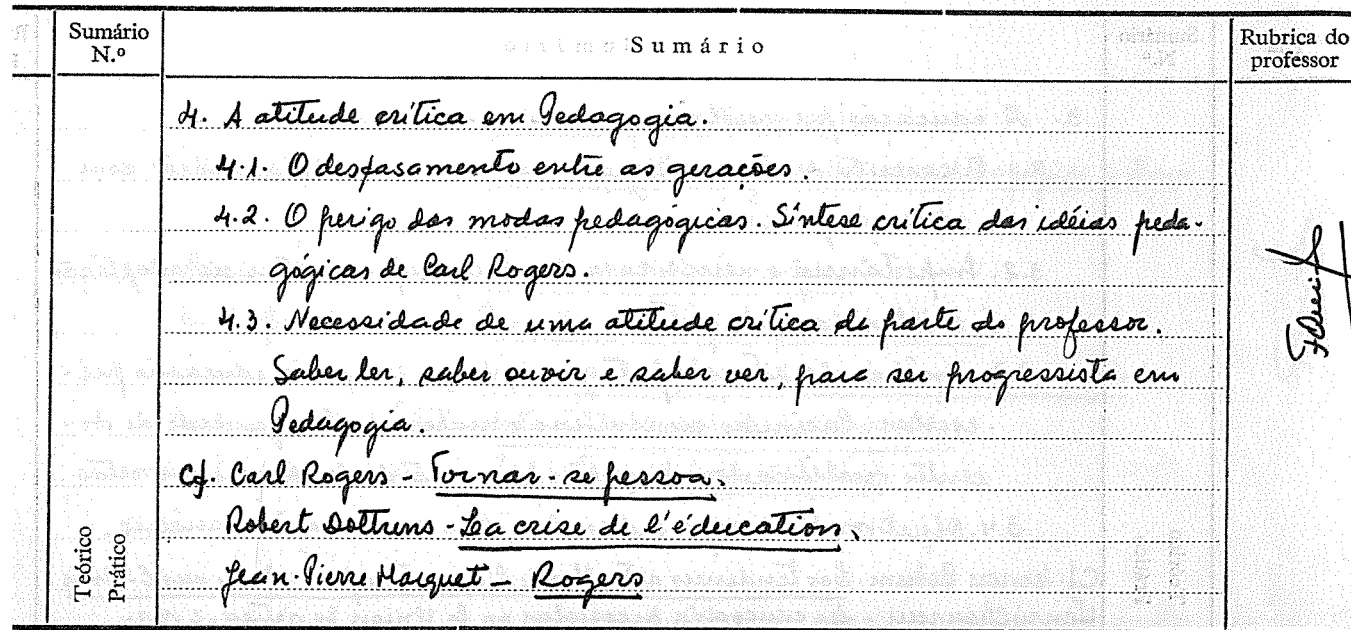 Sumário N.º
Sumário
Rubrica do professor
4. A atitude crítica em Pedagogia.
4.1. O desfasamento entre as gerações.
4.2. O perigo das modas pedagógicas. Síntese crítica das idéias peda-
gógicas de Carl Rogers.
4.3. Necessidade de uma atitude crítica da parte do professor.
Saber ler, saber ouvir e saber ver, para ser progressista em
Pedagogia.
Cf. Carl Rogers - Tornar-se pessoa.
Robert Dottrens - La crise de l'éducation.
Jean-Pierre - Rogers
Teórico
Prático